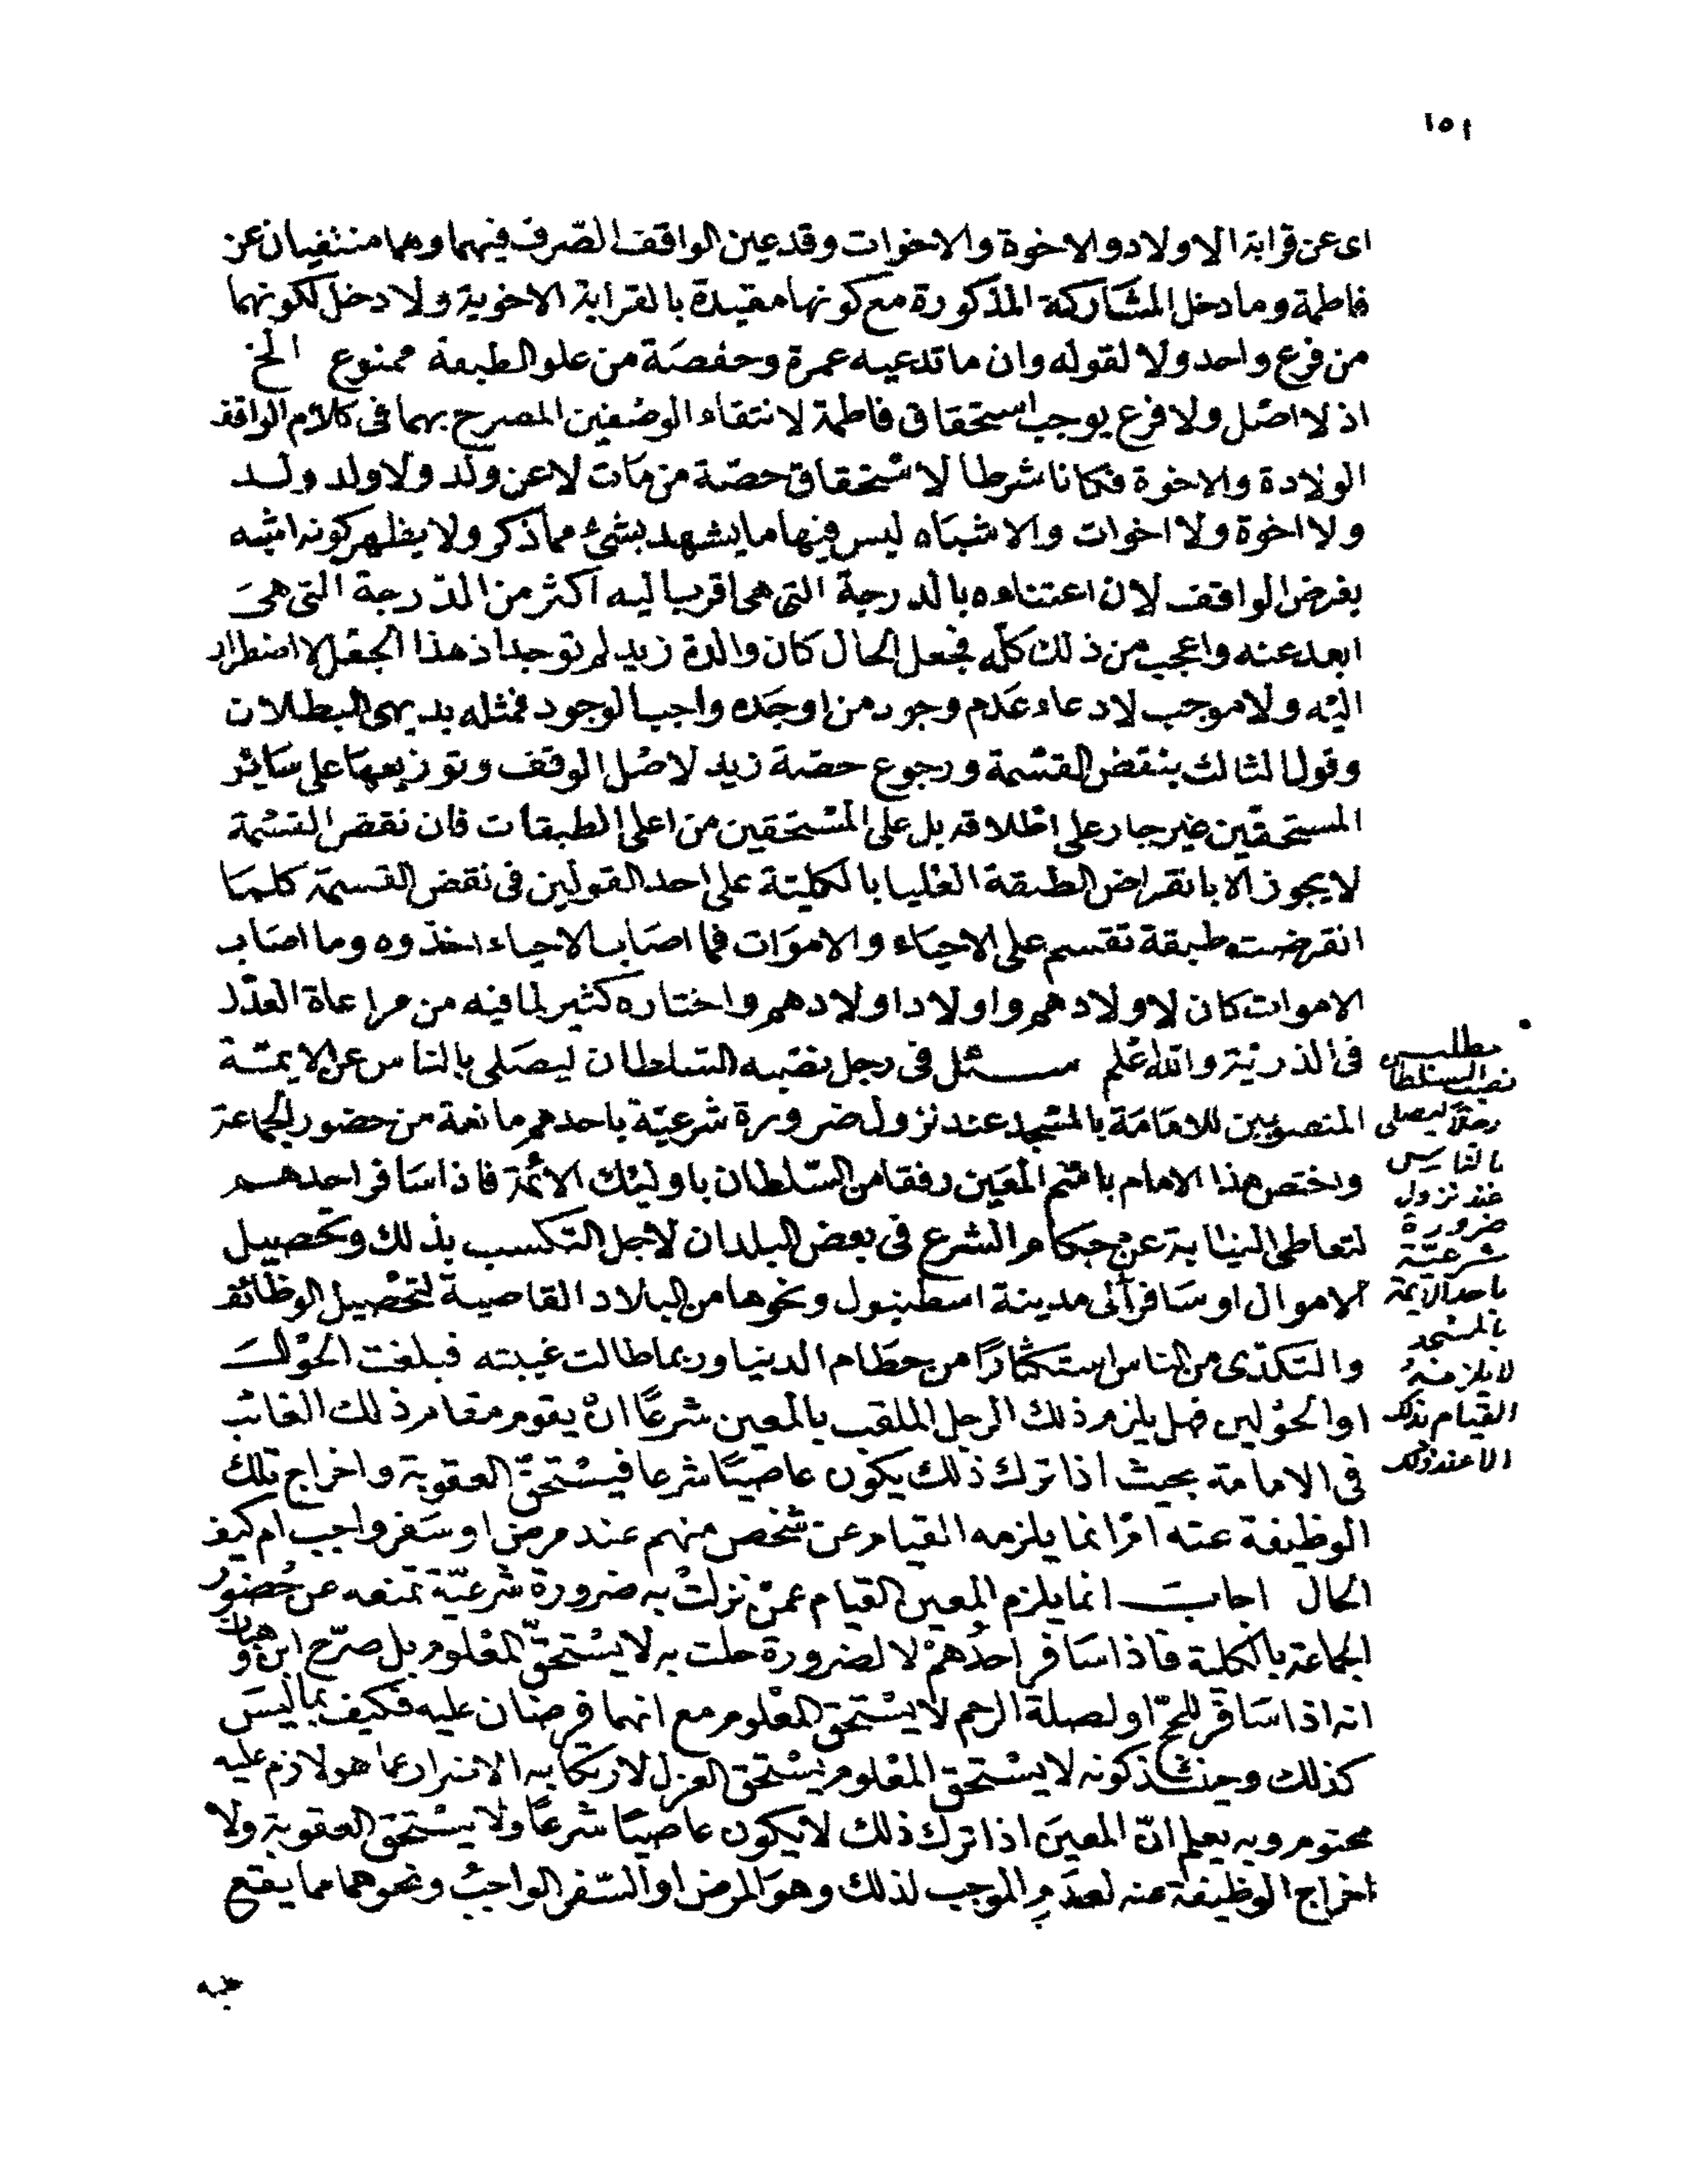 ١٥١
اى عن قرابة الاولاد والاخوة والاخوات وقد عين الواقف الصرف فيهما وهما منتفيان عن
فاطمة وما دخل المشاركة المذكورة مع كونها مقيدة بالقرابة الاخوية ولا دخل لكونهما
من فرع واحد ولا لقوله وان ما تدعيه عمرة وحفصة من علو الطبقة ممنوع الخ
اذ لا اصل ولا فرع يوجب استحقاق فاطمة لانتفاء الوصفين المصرح بهما فى كلام الواقف
الولادة والاخوة فكانا شرطا لاستحقاق حصة من مات لا عن ولد ولا ولد ولد
ولا اخوة ولا اخوات والاشباه ليس فيها ما يشهد بشئ مما ذكر ولا يظهر كونه اشبه
بغرض الواقف لان اعتناءه بالدرجة التى هى اقرب اليه اكثر من الدرجة التى هى
ابعد عنه واعجب من ذلك كله فجعل الحال كان والدة زيد لم توجد اذ هذا الجعل لا اضطرار
اليه ولا موجب لادعاء عدم وجود من اوجده واجب الوجود فمثله بديهى البطلان
وقول الثالث ينقض القسمة ورجوع حصة زيد لاصل الوقف وتوزيعها على سائر
المستحقين غير جار على اطلاقه بل على المستحقين من اعلى الطبقات فان نقض القسمة
لا يجوز الا بانقراض الطبقة العليا بالكلية على احد القولين فى نقض القسمة كلما
انقرضت طبقة تقسم على الاحياء والاموات فما اصاب الاحياء اخذوه وما اصاب
الاموات كان لاولادهم واولاد اولادهم واختاره كثير لما فيه من مراعاة العدل
فى الذرية والله اعلم سئل فى رجل نصبه السلطان ليصلى بالناس عن الايمة
المنصوبين للامامة بالمسجد عند نزول ضرورة شرعية باحدهم مانعة من حضور الجماعة
ويختص هذا الامام باسم المعين رفقا من السلطان باولئك الائمة فاذا سافر احدهم
لتعاطى النيابة عن حكام الشرع فى بعض البلدان لاجل التكسب بذلك وتحصيل
الاموال او سافر الى مدينة اسطنبول ونحوها من البلاد القاصية لتحصيل الوظائف
والتكدى من الناس استكثارا من حطام الدنيا وربما طالت غيبته فبلغت الحول
او الحولين فهل يلزم ذلك الرجل الملقب بالمعين شرعا ان يقوم مقام ذلك الغائب
فى الامامة بحيث اذا ترك ذلك يكون عاصيا شرعا فيستحق العقوبة واخراج تلك
الوظيفة عنه ام انما يلزمه القيام عن شخص منهم عند مرض او سفر واجب ام كيف
الحال اجاب انما يلزم المعين القيام عمن نزلت به ضرورة شرعية تمنعه عن حضور
الجماعة بالكلية فاذا سافر احدهم لا لضرورة حلت به لا يستحق المعلوم بل صرح ابن وهبان
انه اذا سافر للحج او لصلة الرحم لا يستحق المعلوم مع انهما فرضان عليه فكيف بما ليس
كذلك وحينئذ كونه لا يستحق المعلوم يستحق العزل لارتكابه الاضرار عما هو لازم عليه
محتوم وبه يعلم ان المعين اذا ترك ذلك لا يكون عاصيا شرعا ولا يستحق العقوبة ولا
اخراج الوظيفة عنه لعدم الموجب لذلك وهو المرض او السفر الواجب ونحوهما مما يقع
مطلب
نصب السلطان
رجلا ليصلى
بالناس
عند نزول
ضرورة
شرعية
باحد الايمة
بالمسجد
لا يلزمه
القيام بذلك
الا عند ذلك